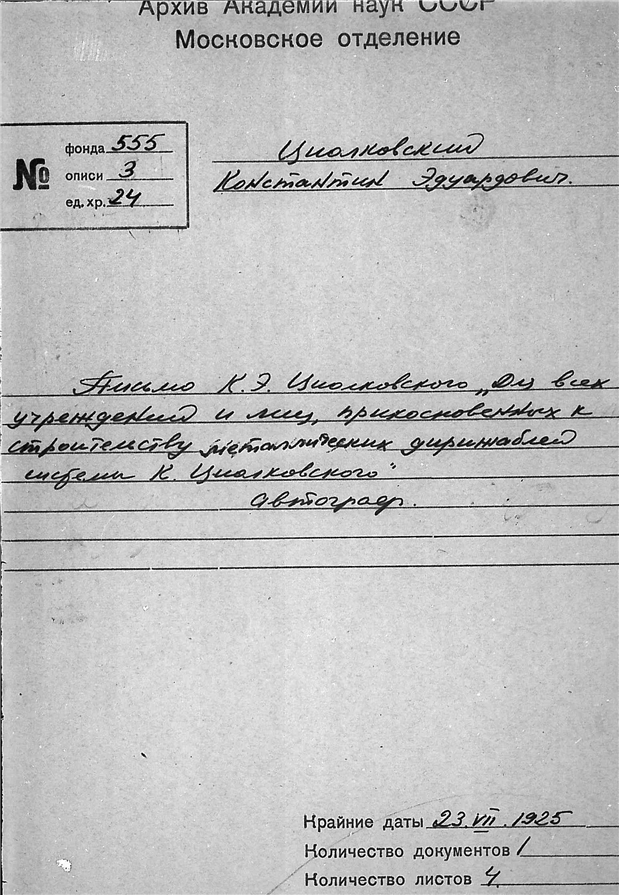 Архив Академии наук СССР
Московское отделение
№
фонда 555
описи 3
ед. хр. 24
Циолковский
Константин Эдуардович.
Письмо К.Э. Циолковского „Для всех
учреждений и лиц, прикосновенных к
строительству металлических дирижаблей
системы К. Циолковского"
Автограф.
Крайние даты 23.VII.1925
Количество документов 1
Количество листов 4.